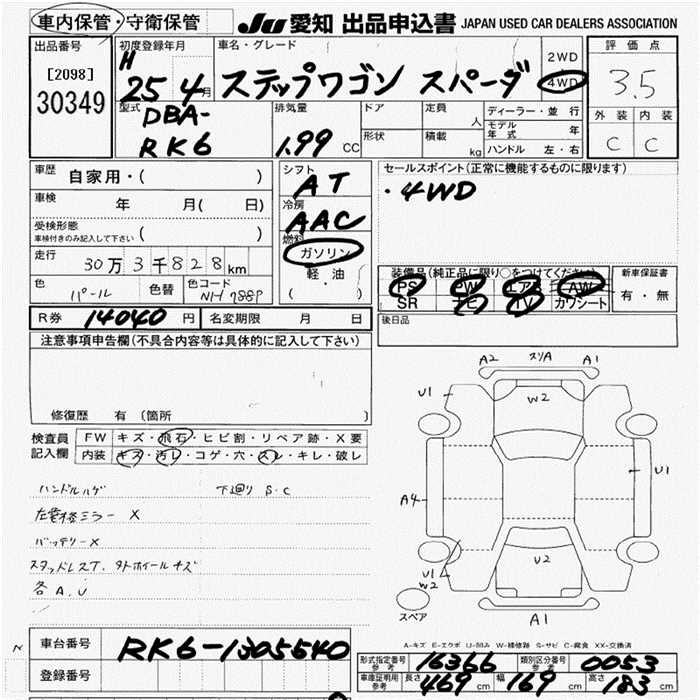 車内保管・守衛保管 JU 愛知 出品申込書 JAPAN USED CAR DEALERS ASSOCIATION
出品番号 初度登録年月 車名・グレード 2WD 評価点
[2098] H 25 4月 ステップワゴン スパーダ 4WD 3.5
30349 型式 排気量 ドア 定員 ディーラー・並行 外装 内装
DBA- 人 モデル年式 年
RK6 1.99 CC 形状 積載 kg ハンドル 左・右 C C
車歴 自家用・( ) シフト セールスポイント (正常に機能するものに限ります)
車検 年 月( 日) AT ・4WD
受検形態 ( ) 冷房
車検付きのみ記入して下さい AAC
走行 30万3千828km 燃料 ガソリン 装備品(純正品に限り○をつけてください) 新車保証書
軽・油 PS PW エアB AW 有・無
色 パール 色替 色コード NH788P ( ) SR ナビ TV カワシート
R券 14040円 名変期限 月 日 後日品
注意事項申告欄(不具合内容等は具体的に記入して下さい)
修復歴 有(箇所 )
検査員 FW キズ・飛石・ヒビ割・リペア跡・X要
記入欄 内装 キズ・汚レ・コゲ・穴・スレ・キレ・破レ
ハンドルハゲ 下廻り S.C
左電格ミラー X
バッテリーX
スタッドレスT. タトホイールキズ
各A.U
A2 スリA A1
U1 W2
U1
A4
U2
U1
W2
スペア A1
A-キズ E-エクボ U-凹み W-補修跡 S-サビ C-腐食 XX-交換済
N 車台番号 RK6-1305540
登録番号
形式指定番号 参考 16366 類別区分番号 参考 0053
車庫証明用 参考 長さ 469cm 幅 169cm 高さ 183cm